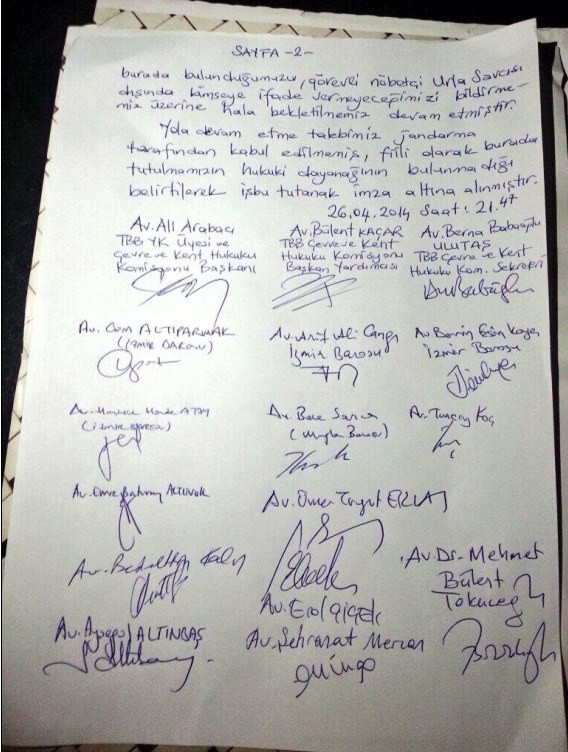 SAYFA -2-
burada bulunduğumuzu, görevli nöbetçi Urla Savcısı
dışında kimseye ifade vermeyeceğimizi bildirme-
miz üzerine hala bekletilmemiz devam etmiştir.
Yola devam etme talebimiz jandarma
tarafından kabul edilmemiş, fiili olarak burada
tutulmamızın hukuki dayanağının bulunmadığı
belirtilerek işbu tutanak imza altına alınmıştır.
26.04.2014 Saat: 21.47
Av. Ali Arabacı
TBB YK Üyesi ve
Çevre ve Kent Hukuku
Komisyonu Başkanı
Av. Bülent KAÇAR
TBB Çevre ve Kent
Hukuku Komisyonu
Başkan Yardımcısı
Av. Berna Babaoğlu
ULUTAŞ
TBB Çevre ve Kent
Hukuku Kom. Sekreteri
Av. Cem ALTIPARMAK
(İzmir BAROSU)
Av. Arif Ali Cangı
İzmir Barosu
Av.
İzmir Barosu
Av. Hande ATAY
(İzmir Barosu)
Av.
(Muğla Barosu)
Av. Tuncay Koç
Av. Emre Baturay ALTINOK
Av. Ömer Turgut
Av.
Av. Erol ÇİÇEK
Av. Dr. Mehmet
Bülent
Av. ALTINBAŞ
Av. Şehrazat Mercan